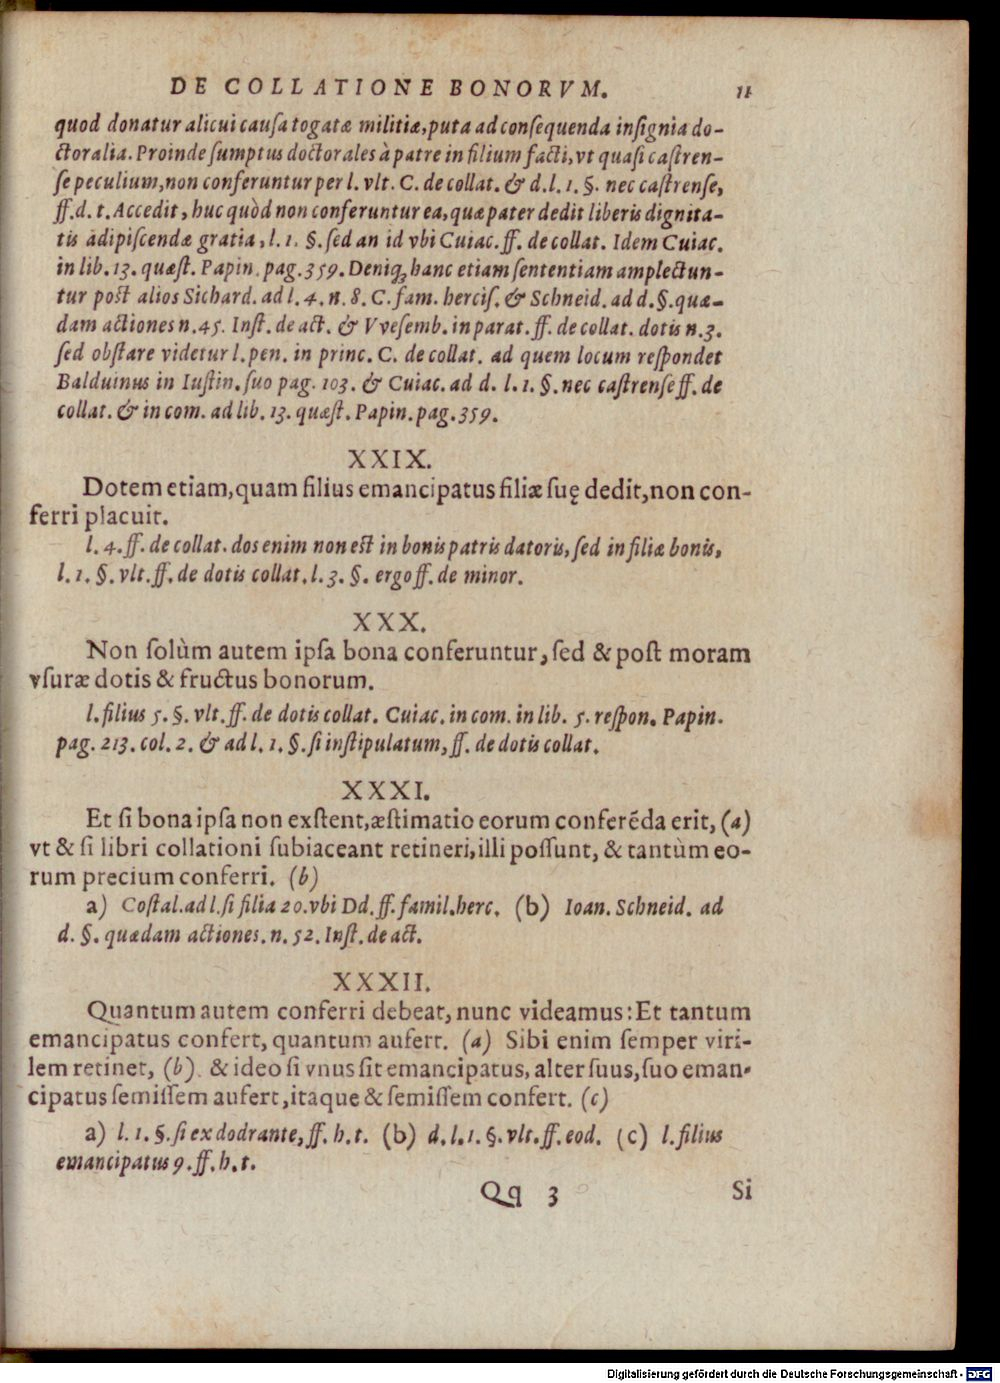 DE COLLATIONE BONORVM. 11
quod donatur alicui cauſa togatæ militiæ, puta ad conſequenda inſignia do-
ctoralia. Proinde ſumptus doctorales à patre in filium facti, vt quaſi caſtren-
ſe peculium, non conferuntur per l. vlt. C. de collat. & d. l. 1. §. nec caſtrenſe,
ff. d. t. Accedit, huc quòd non conferuntur ea, quæ pater dedit liberis dignita-
tis adipiſcendæ gratia, l. 1. §. ſed an id vbi Cuiac. ff. de collat. Idem Cuiac.
in lib. 13. quæſt. Papin. pag. 359. Deniq; hanc etiam ſententiam amplectun-
tur poſt alios Sichard. ad l. 4. n. 8. C. fam. herciſ. & Schneid. ad d. §. quæ-
dam actiones n. 45. Inſt. de act. & VVeſemb. in parat. ff. de collat. dotis n. 3.
ſed obſtare videtur l. pen. in princ. C. de collat. ad quem locum reſpondet
Balduinus in Iuſtin. ſuo pag. 103. & Cuiac. ad d. l. 1. §. nec caſtrenſe ff. de
collat. & in com. ad lib. 13. quæſt. Papin. pag. 359.
XXIX.
Dotem etiam, quam filius emancipatus filiæ ſuę dedit, non con-
ferri placuit.
l. 4. ff. de collat. dos enim non eſt in bonis patris datoris, ſed in filiæ bonis,
l. 1. §. vlt. ff. de dotis collat. l. 3. §. ergo ff. de minor.
XXX.
Non ſolùm autem ipſa bona conferuntur, ſed & poſt moram
vſuræ dotis & fructus bonorum.
l. filius 5. §. vlt. ff. de dotis collat. Cuiac. in com. in lib. 5. reſpon. Papin.
pag. 213. col. 2. & ad l. 1. §. ſi inſtipulatum, ff. de dotis collat.
XXXI.
Et ſi bona ipſa non exſtent, æſtimatio eorum conferẽda erit, (a)
vt & ſi libri collationi ſubiaceant retineri, illi poſſunt, & tantùm eo-
rum precium conferri. (b)
a) Coſtal. ad l. ſi filia 20. vbi Dd. ff. famil. herc. (b) Ioan. Schneid. ad
d. §. quædam actiones. n. 52. Inſt. de act.
XXXII.
Quantum autem conferri debeat, nunc videamus: Et tantum
emancipatus confert, quantum aufert. (a) Sibi enim ſemper viri-
lem retinet, (b) & ideo ſi vnus ſit emancipatus, alter ſuus, ſuo eman-
cipatus ſemiſſem aufert, itaque & ſemiſſem confert. (c)
a) l. 1. §. ſi ex dodrante, ff. h. t. (b) d. l. 1. §. vlt. ff. eod. (c) l. filius
emancipatus 9. ff. h. t.
Qq 3 Si
Digitalisierung gefördert durch die Deutsche Forschungsgemeinschaft - DFG